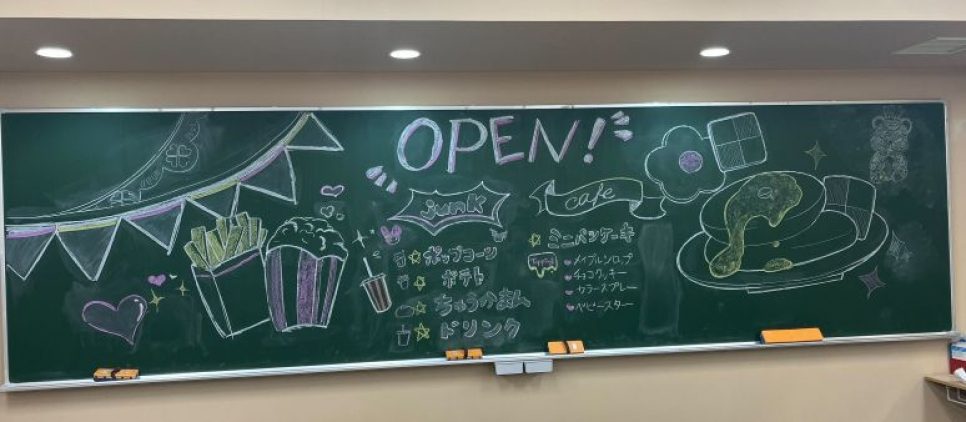 OPEN!
junk
ポップコーン
ポテト
ちゅうかまん
ドリンク
cafe
ミニパンケーキ
Topping
メイプルシロップ
チョコクッキー
カラースプレー
ベビースター